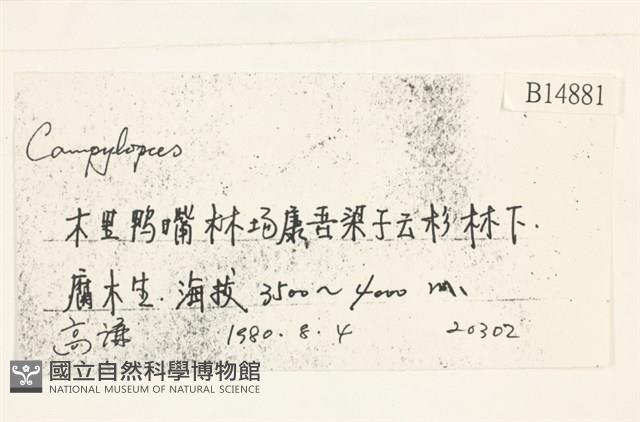 B14881
Campylopus
木里鸭嘴林场康吾梁子云杉林下.
腐木生. 海拔 3500~4000 m.
高谦 1980. 8. 4 20302
國立自然科學博物館
NATIONAL MUSEUM OF NATURAL SCIENCE